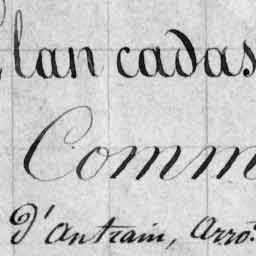 Plan cadas
Comm
d'Antrain, Arro.